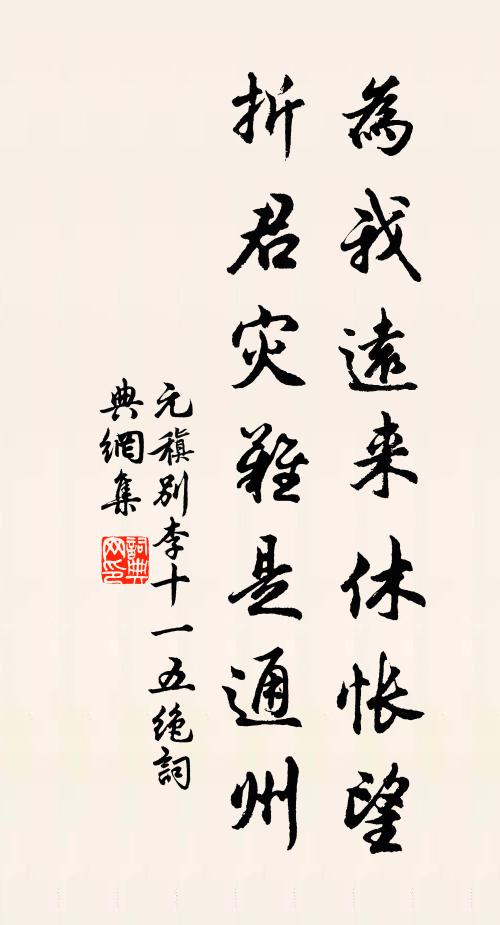 為我遠来休悵望
折君灾難是通州
元稹別李十一五絶詞
典網集
詞典網印